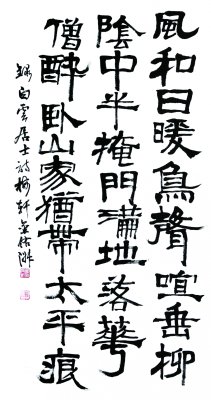 風和日暖鳥聲喧垂柳
陰中半掩門滿地落華
僧醉臥山家猶帶太平痕
錄白雲居士詩梅軒